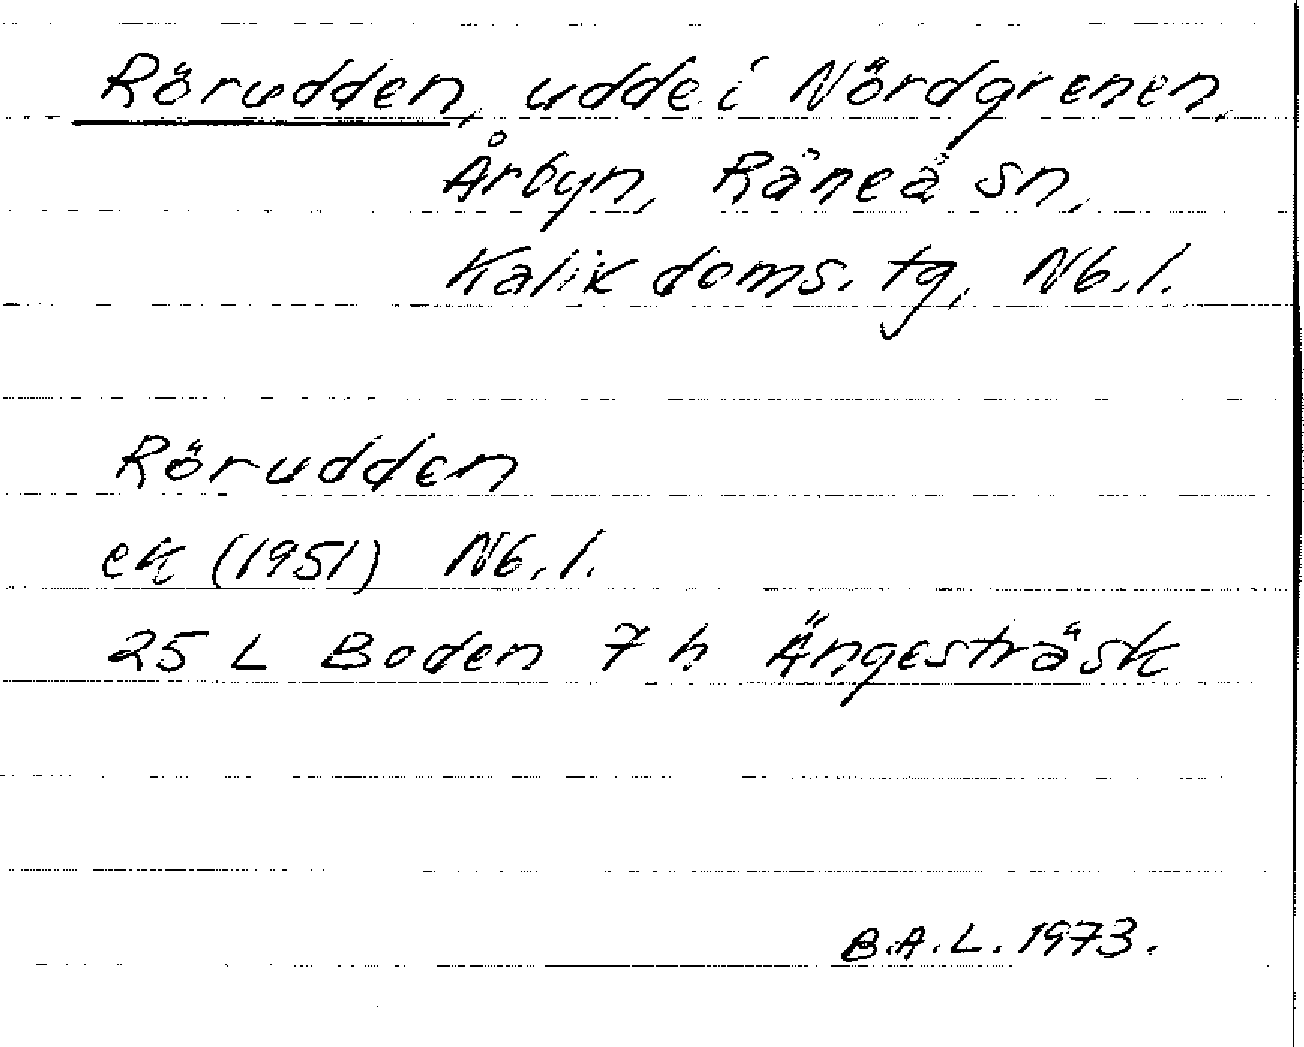 Rörudden, udde i Nördgrenen,
Årbyn, Råneå sn,
Kalix doms. tg, Nb. l.
Rörudden
ek (1951) Nb. l.
25 L Boden 7 h Ängesträsk
B.A.L. 1973.